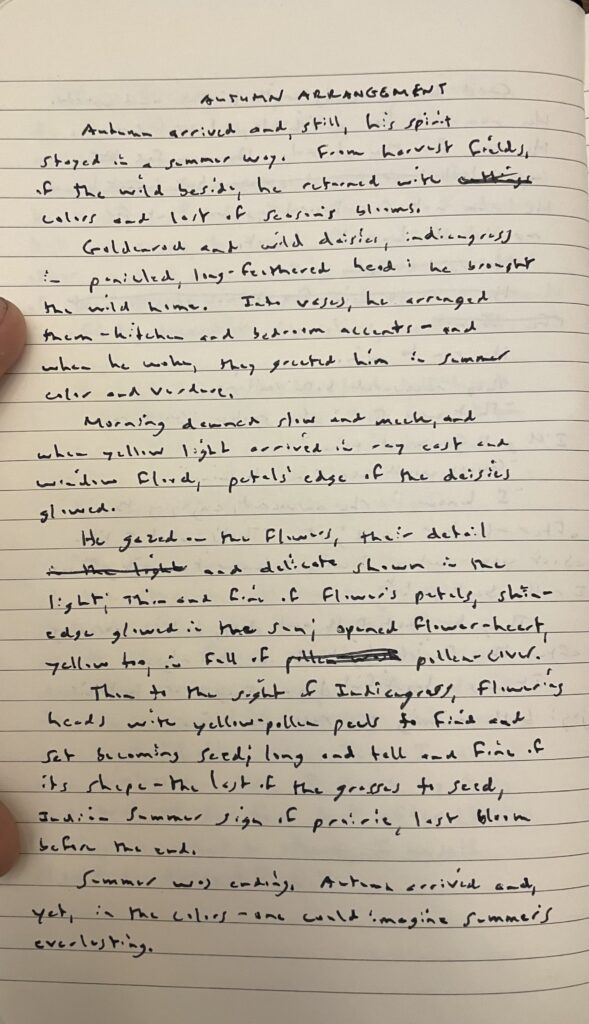 AUTUMN ARRANGEMENT
Autumn arrived and, still, his spirit
stayed in a summer way. From harvest fields,
of the wild beside, he returned with
colors and last of season's blooms.
Goldenrod and wild daisies, indiangrass
in panicled, long-feathered head: he brought
the wild home. Into vases, he arranged
them - kitchen and bedroom accents - and
when he woke, they greeted him in summer
color and verdure.
Morning dawned slow and meek, and
when yellow light arrived in ray cast and
window flood, petals' edge of the daisies
glowed.
He gazed on the flowers, their detail
in the light and delicate shown in the
light; thin and fine of flower's petals, skin-
edge glowed in the sun; opened flower-heart,
yellow too, in full of pollen-cover.
Then to the sight of Indiangrass, flowering
heads with yellow-pollen peels to find and
set becoming seed; long and tall and fine of
its shape - the last of the grasses to seed,
Indian Summer sign of prairie, last bloom
before the end.
Summer was ending. Autumn arrived and,
yet, in the colors - one could imagine summer's
everlasting.